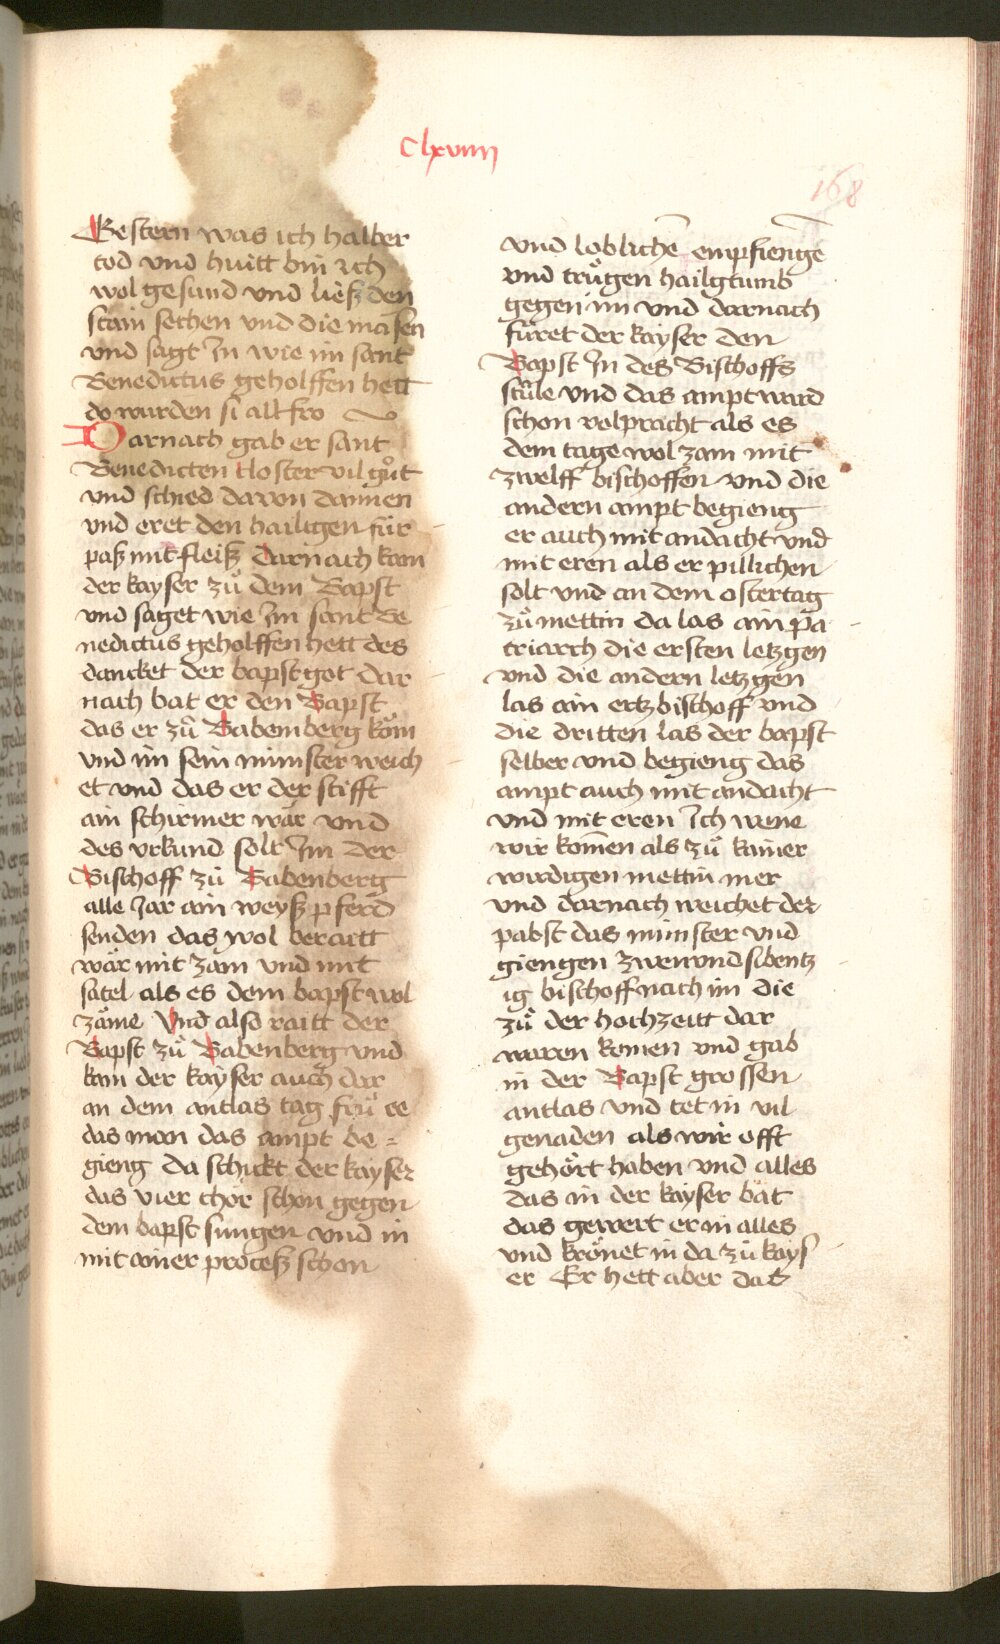 Clxviiij
168
Gestern was ich halber
tod vnd huitt bin ich
wol gesund vnd ließ den
stain sechen vnd die masen
vnd sagt In wie im sant
Benedictus geholffen hett
do wurden si all fro
Darnach gab er sant
Benedicten closter vil gůt
vnd schied davon dannen
vnd eret den hailigen für
paß mit fleiß darnach kam
der kayser zů dem Bapst
vnd saget wie Im sant Be
nedictus geholffen hett des
dancket der bapst got dar
nach bat er den Bapst
das er zů Babemberg köm
vnd im sein minster weich
et vnd das er der stifft
ain schirmer wär vnd
des vrkund solt Im der
Bischoff zů Babenberg
alle Jar ain weyß pferd
senden das wol beraitt
wär mit zam vnd mit
satel als es dem bapst wol
zäme Vnd also raitt der
Bapst zů Babenberg vnd
kam der kayser auch dar
an dem antlas tag frů ee
das man das ampt be =
gieng da schickt der kayser
das vier chör schon gegen
dem bapst sungen vnd in
mit ainer proceß schon
vnd loblichē empfiengē
vnd trůgen hailgtumb
gegen im vnd darnach
füret der kayser den
Bapst In des Bischoffs
stůle vnd das ampt ward
schon volpracht als es
dem tage wol zam mit
zwelff bischoffen vnd die
andern ampt begieng
er auch mit andacht vnd
mit eren als er pillichen
solt vnd an dem ostertag
zů mettin da las ain pa
triarch die ersten letzgen
vnd die andern letzgen
las ain ertzbischoff vnd
die dritten las der bapst
selber vnd begieng das
ampt auch mit andacht
vnd mit eren Ich wene
wir komēn als zů kainer
wirdigen mettin mer
vnd darnach weichet der
pabst das minster vnd
giengen zwenvnd sibentz
ig bischoff nach im die
zů der hochzeitt dar
waren komen vnd gab
in der Bapst grossen
antlas vnd tet in vil
genaden als wir offt
gehört haben vnd alles
das in der kayser bat
das gewert er in alles
vnd krönet in da zů kays
er Er hett aber das